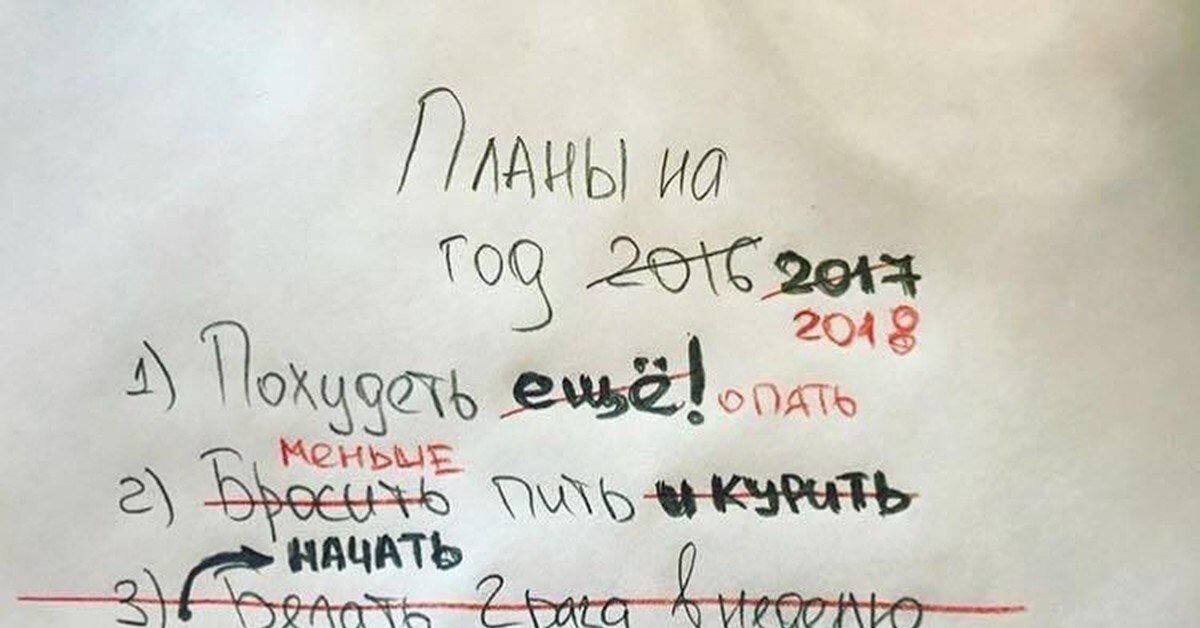 Планы на
год 2016 2017
2018
1) Похудеть ещё! опать
меньше
2) Бросить пить и курить
начать
3) Бегать 2 раза в неделю